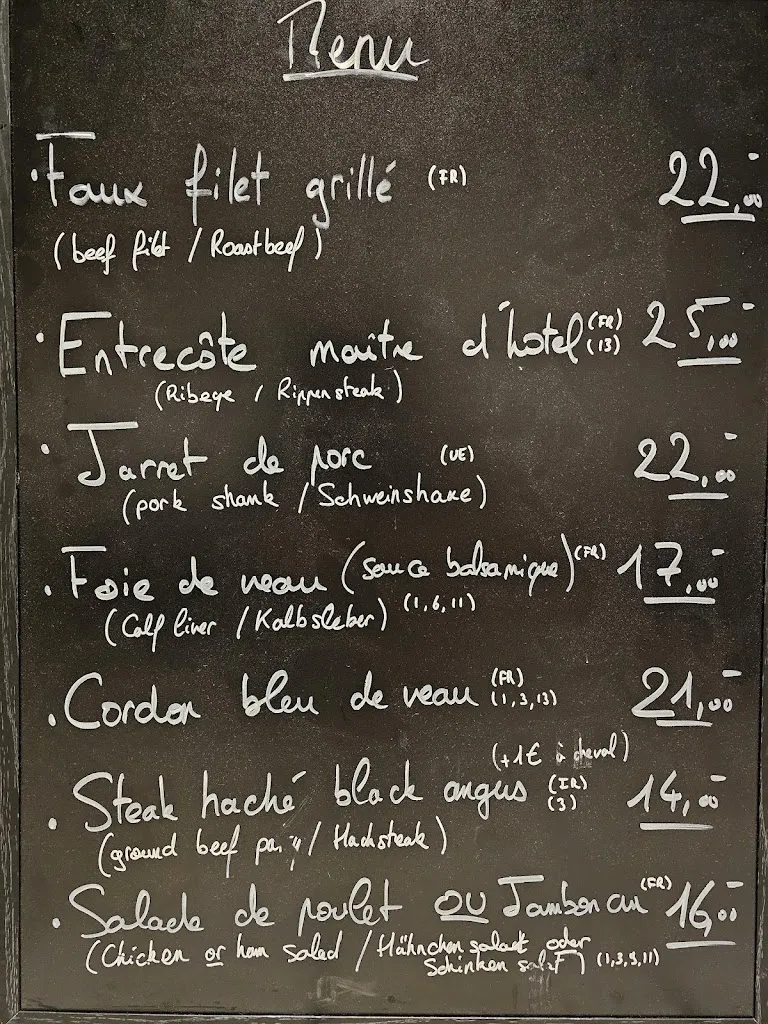 Menu
· Faux filet grillé (FR) 22,00
(beef filet / Roastbeef)
· Entrecôte maître d'hotel (FR) (13) 25,00
(Ribeye / Rippensteak)
· Jarret de porc (UE) 22,00
(pork shank / Schweinshaxe)
· Foie de veau (sauce balsamique) (FR) 17,00
(Calf liver / Kalbsleber) (1,6,11)
· Cordon bleu de veau (FR) (1,3,13) 21,00
(+1€ à cheval)
· Steak haché black angus (IR) (3) 14,00
(ground beef / Hacksteak)
· Salade de poulet OU Jambon (FR) 16,00
(Chicken or ham salad / Hähnchen salat oder
Schinken salat) (1,3,9,11)